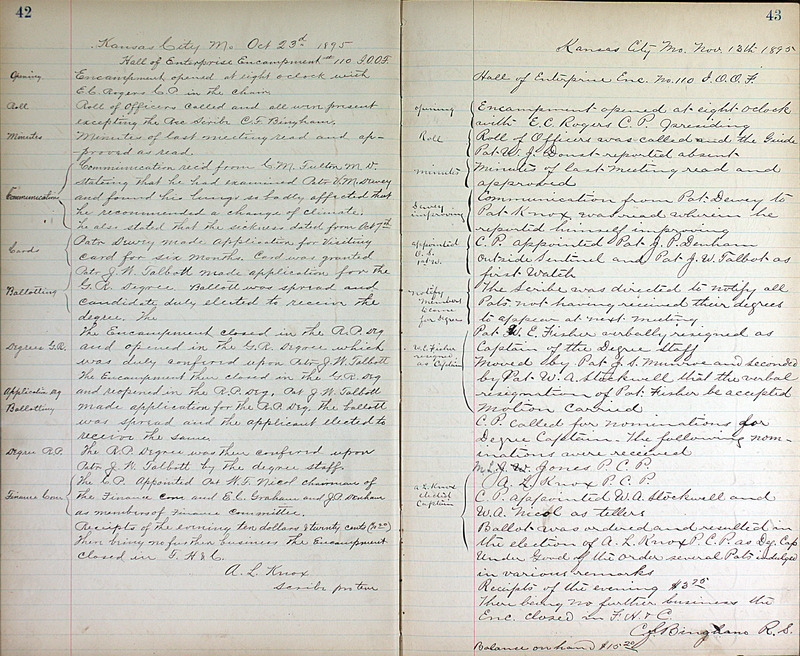 42
Kansas City Mo. Oct 23rd 1895
Hall of Enterprise Encampment #110 I.O.O.F.
Opening Encampment opened at eight oclock with
E.C. Rogers C.P. in the chair
Roll Roll of Officers called and all were present
excepting the Rec Scribe C.F. Bingham.
Minutes Minutes of last meeting read and ap-
-proved as read.
Communication Communication rec'd from C.M. Fulton M.D.
stateing that he had examined Patr V.M. Dewey
and found his lungs so badly affected that
he recommended a change of climate.
he also stated that the sickness dated from Oct 7th
Cards Patr Dewey made application for Visiting
card for six months. Card was granted
Ballotting Patr J.W. Talbott made application for the
G.R. Degree. Ballott was spread and
candidate duly elected to receive the
degree. The
The Encampment closed in the R.P. Deg
Degrees G.R. and opened in the G.R. Degree which
was duly confered upon Patr J.W. Talbott
The Encampment then closed in the G.R. Deg
Application and reopened in the R.P. Deg. Pat J.W. Talbott
Ballotting made application for the R.P. Deg. the ballott
was spread and the applicant elected to
receive the same.
Degree R.P. The R.P. Degree was then confered upon
Patr J.W. Talbott by the degree staff.
The C.P. Appointed Pat W.T. Nicol chairman of
Finance Com the Finance com and E.C. Graham and J.P. Denham
as members of Finance Committee.
Receipts of the evening ten dollars & twenty cents
There being no further business the Encampment
closed in F. H & C.
A. L. Knox
Scribe protem
43
Kansas City Mo. Nov 13th 1895
Hall of Enterprise Enc. No. 110 I.O.O.F.
opening Encampment opened at eight oclock
with E.C. Rogers C.P. presiding
Roll Roll of Officers was called and the Guide
Pat W.J. Donat reported absent
minutes Minutes of last meeting read and
approved
Dewey Communication from Pat. Dewey to
improving Pat Knox was read wherein he
reported himself improving
appointed C.P. appointed Pat J.P. Denham
O.S. Outside Sentinel and Pat J.W. Talbot as
1st W. first Watch
Notify The Scribe was directed to notify all
Members Pats not having received their degrees
to come for degree to appear at next meeting
Pat W.E. Fisher verbally resigned as
W.E. Fisher Captain of the Degree staff
resigned Moved by Pat J.S. Munroe and seconded
as Captain by Pat. W.A. Stockwell that the verbal
resignation of Pat. Fisher be accepted
Motion Carried
C.P. called for nominations for
Degree Captain. The following nom-
inations were received
Jones P.C.P.
A.L. Knox P.C.P.
A.L. Knox C.P. appointed W.A. Stockwell and
elected W.A. Nicol as tellers
Captain Ballot was ordered and resulted in
the election of A.L. Knox P.C.P. as Dg. Cap
Under Good of the Order several Pats indulged
in various remarks
Receipts of the evening
There being no further business the
Enc. closed in F. H. & C.
C.F. Bingham R.S.
Balance on hand